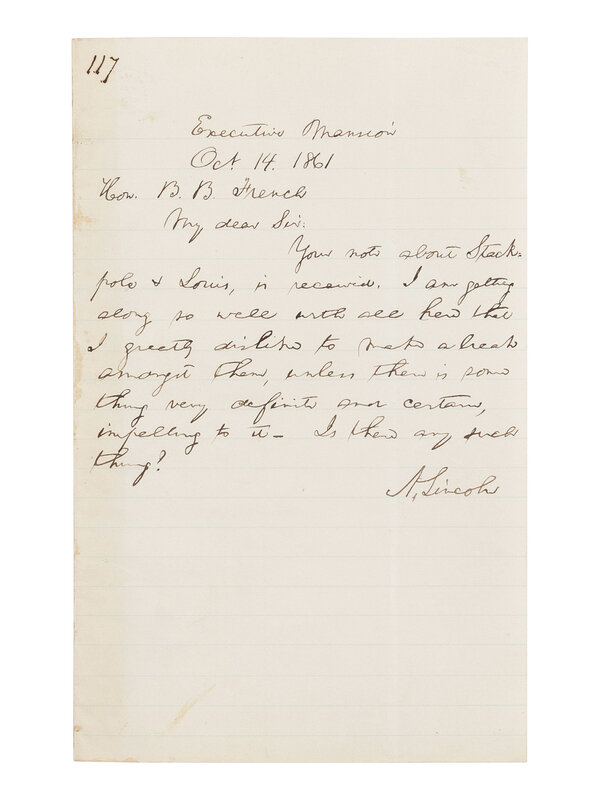 117
Executive Mansion
Oct. 14. 1861
Hon. B. B. French
My dear Sir:
Your note about Stack-
pole & Louis, is received. I am getting
along so well with all here that
I greatly dislike to make a break
amongst them, unless there is some
thing very definite and certain,
impelling to it— Is there any such
thing?
A. Lincoln